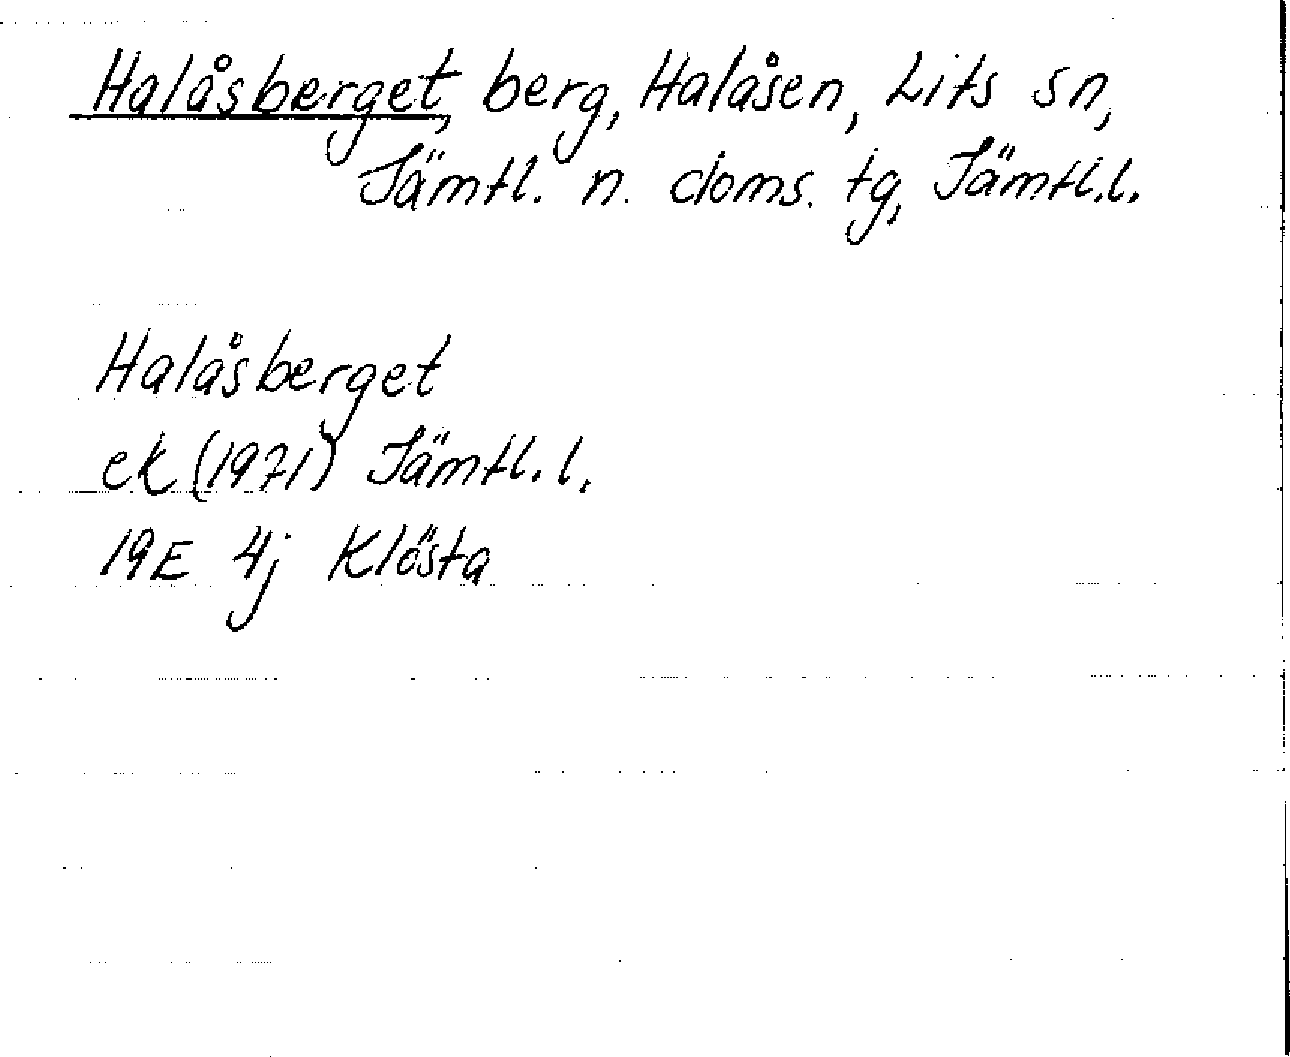 Halåsberget, berg, Halåsen, Lits sn,
Jämtl. n. doms. tg, Jämtl.l.
Halåsberget
ek (1971) Jämtl.l.
19E 4j Klösta